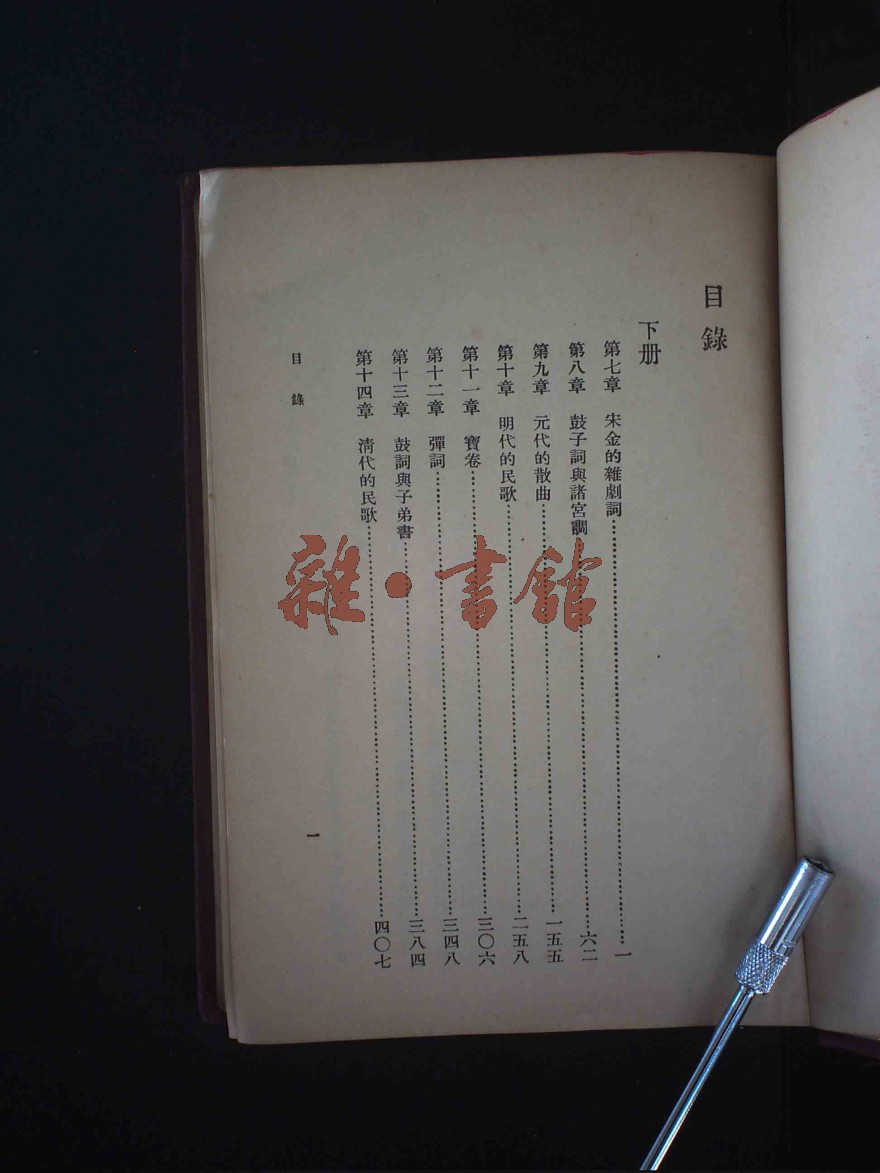 目錄
下册
第七章　宋金的雜劇詞……一
第八章　鼓子詞與諸宮調……六二
第九章　元代的散曲……一五五
第十章　明代的民歌……二五八
第十一章　寶卷……三〇六
第十二章　彈詞……三四八
第十三章　鼓詞與子弟書……三八四
第十四章　淸代的民歌……四〇七
目錄
一
雜·書館